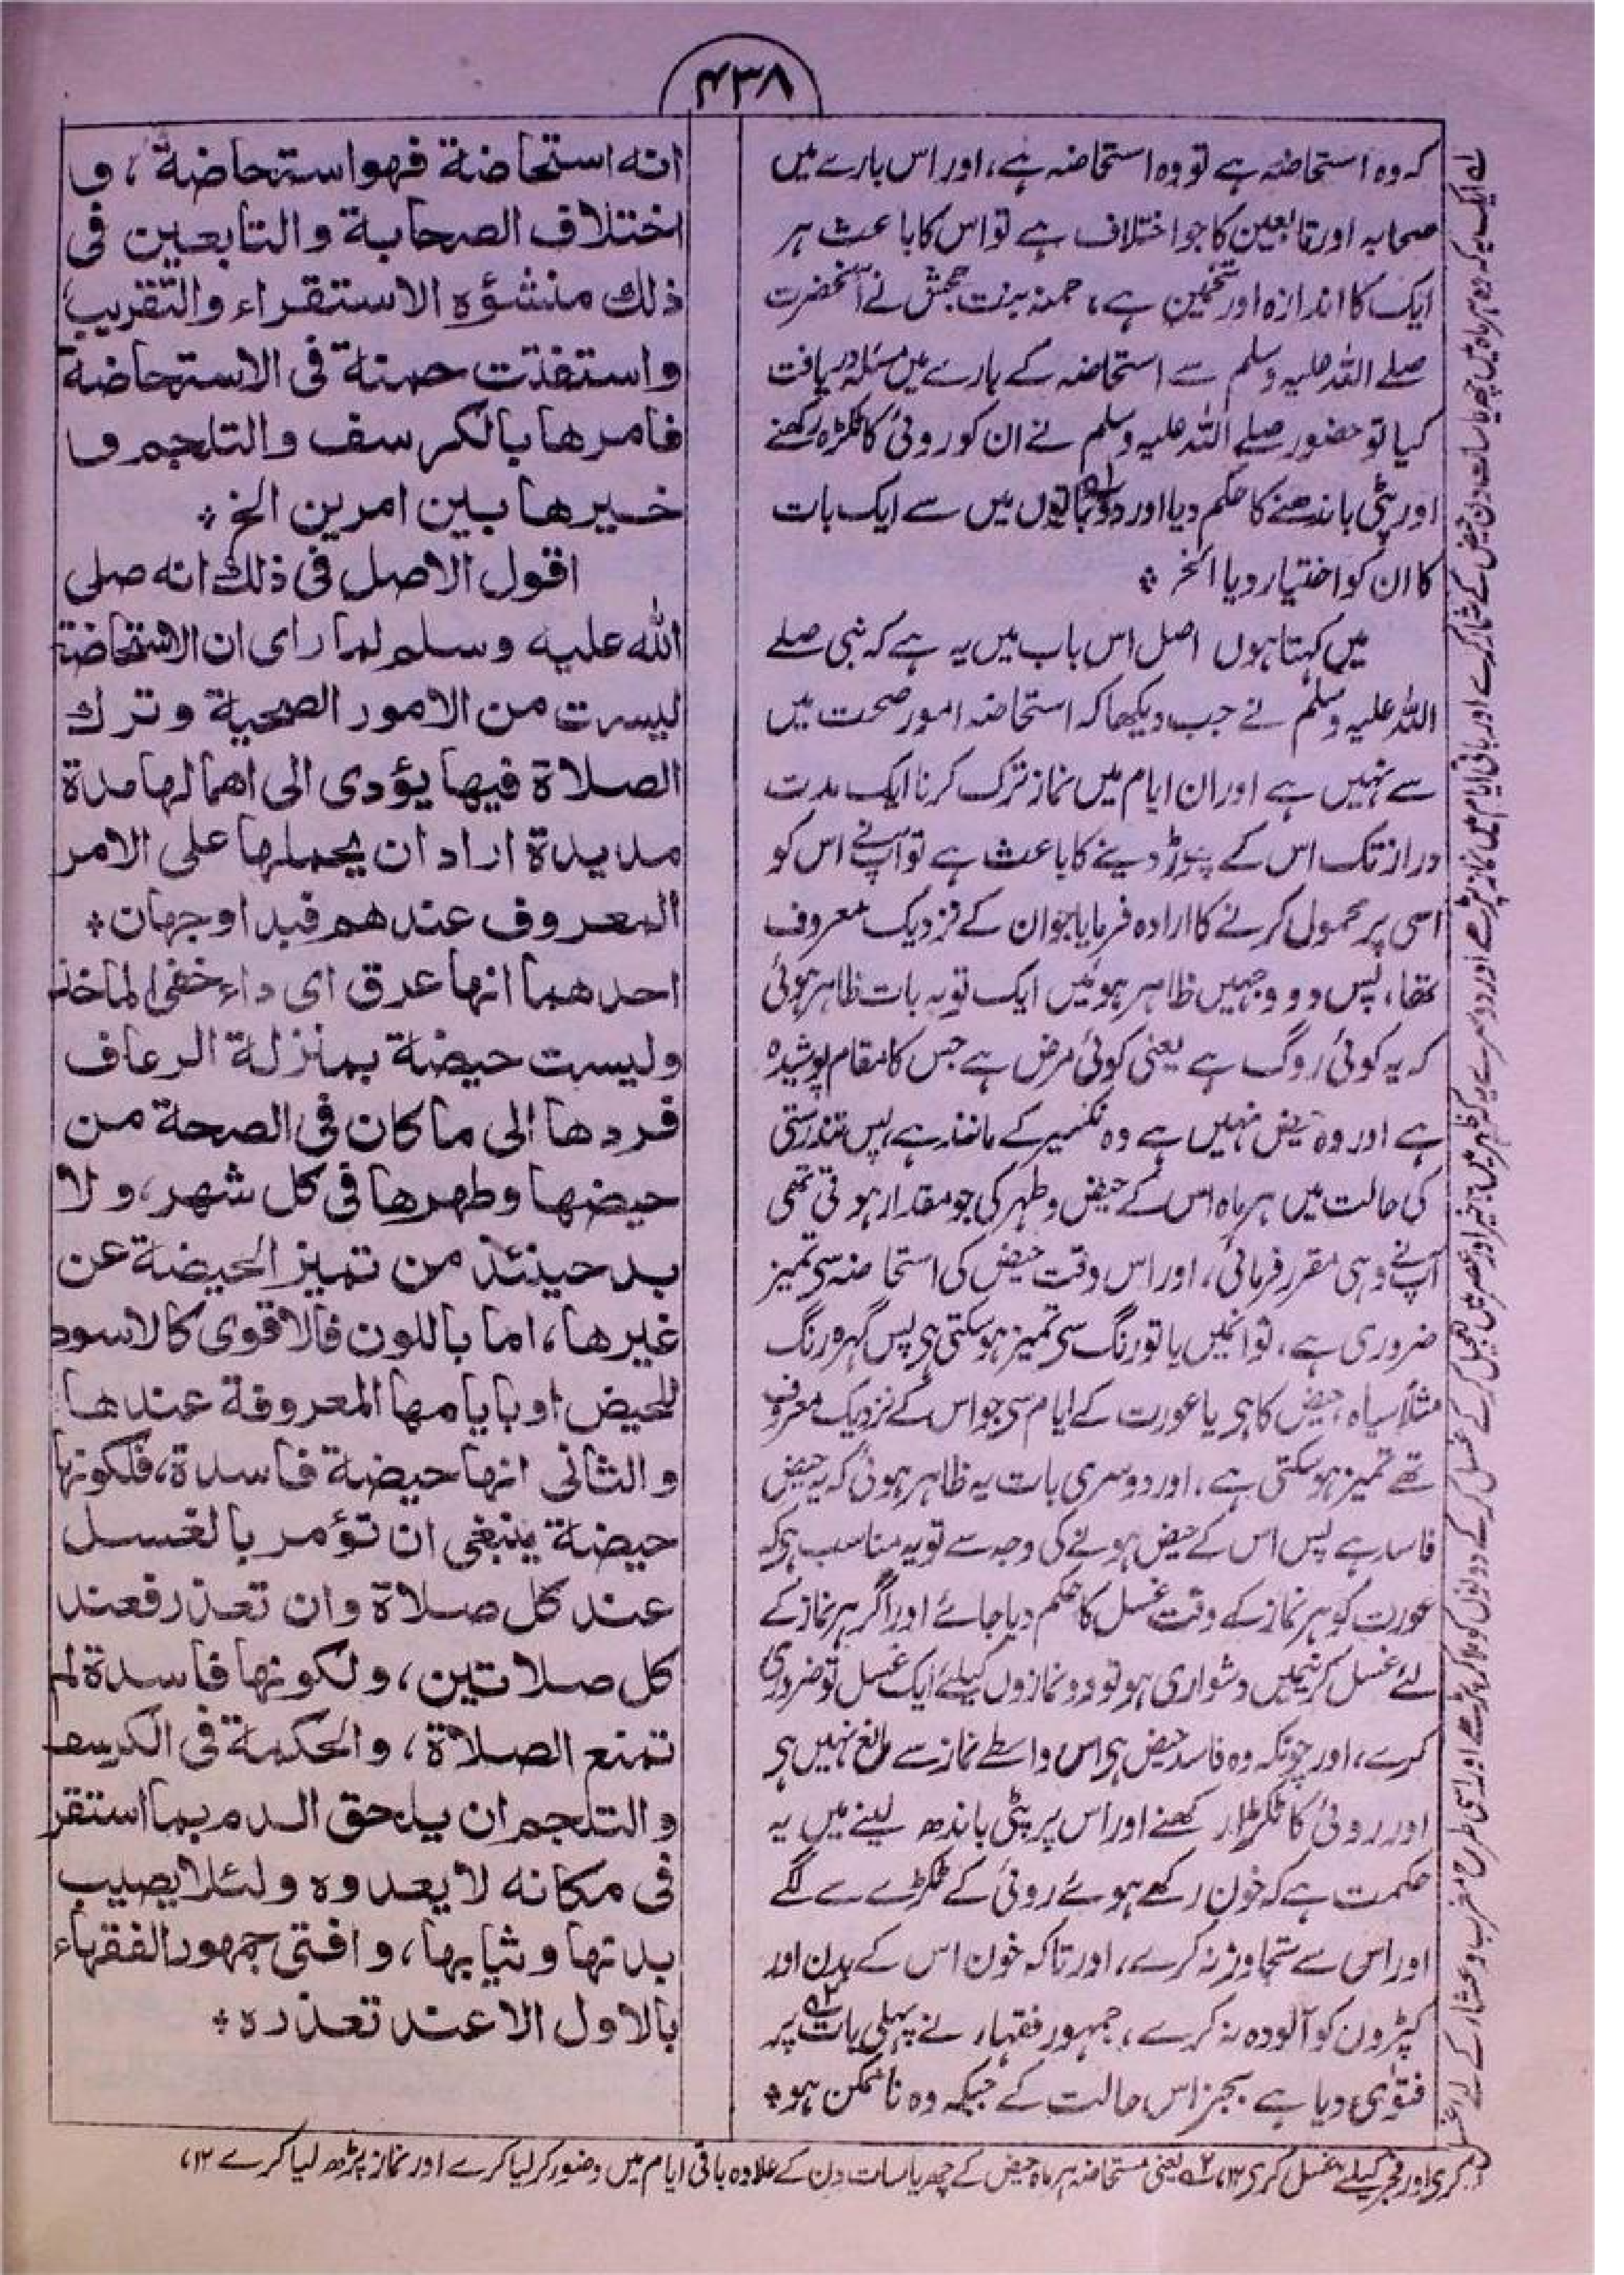 ۴۳۸
کہ وہ استحاضہ ہے تو وہ استحاضہ ہے، اور اس بارے میں
صحابہ اور تابعین کا جو اختلاف ہے تو اس کا باعث ہر
ایک کا اندازہ اور تخمین ہے، حمنہ بنت جحش نے آنحضرت
صلے اللہ علیہ وسلم سے استحاضہ کے بارے میں مسئلہ دریافت
کیا تو حضور صلے اللہ علیہ وسلم نے ان کو روئی کا ٹکڑہ رکھنے
اور پٹی باندھنے کا حکم دیا اور دو باتوں میں سے ایک بات
کا ان کو اختیار دیا الخ ٭
میں کہتا ہوں اصل اس باب میں یہ ہے کہ نبی صلے
اللہ علیہ وسلم نے جب دیکھا کہ استحاضہ امور صحت میں
سے نہیں ہے اور ان ایام میں نماز ترک کرنا ایک مدت
دراز تک اس کے چھوڑ دینے کا باعث ہے تو آپنے اس کو
اسی پر محمول کرنے کا ارادہ فرمایا جو ان کے نزدیک معروف
تھا، پس دو وجہیں ظاہر ہوئیں ایک تو یہ بات ظاہر ہوئی
کہ یہ کوئی روگ ہے یعنی کوئی مرض ہے جس کا مقام پوشیدہ
ہے اور وہ حیض نہیں ہے وہ نکسیر کے مانند ہے، پس تندرستی
کی حالت میں ہر ماہ اس کے حیض و طہر کی جو مقدار ہوتی تھی
آپنے وہی مقرر فرمائی، اور اس وقت حیض کی استحاضہ سی تمیز
ضروری ہے، تو انمیں یا تو رنگ سی تمیز ہوسکتی ہی پس گہرہ رنگ
مثلاً سیاہ، حیض کا ہی یا عورت کے ایام سی جو اس کے نزدیک معروف
تھے تمیز ہوسکتی ہے، اور دوسری بات یہ ظاہر ہوئی کہ یہ حیض
فاسد ہے پس اس کے حیض ہونے کی وجہ سے تو یہ مناسب ہی کہ
عورت کو ہر نماز کے وقت غسل کا حکم دیا جائے اور اگر ہر نماز کے
لئے غسل کرنیمیں دشواری ہو تو دو نمازوں کیلئے ایک غسل تو ضروری
کرے، اور چونکہ وہ فاسد حیض ہی اس واسطے نماز سے مانع نہیں ہی
اور روئی کا ٹکڑا رکھنے اور اس پر پٹی باندھ لینے میں یہ
حکمت ہے کہ خون رکھے ہوئے روئی کے ٹکڑے سے لگے
اور اس سے متجاوز نہ کرے، اور تاکہ خون اس کے بدن اور
کپڑوں کو آلودہ نہ کرے، جمہور فقہاء نے پہلی بات پر
فتویٰ دیا ہے بجز اس حالت کے جبکہ وہ ناممکن ہو ٭
انه استحاضة فهو استحاضة، و
اختلاف الصحابة والتابعين فى
ذلك منشؤه الاستقراء والتقريب
واستفتت حمنة فى الاستحاضة
فامرها بالكرسف والتلجم و
خيرها بين امرين الخ ٭
اقول الاصل فى ذلك انه صلى
الله عليه وسلم لما راى ان الاستحاضة
ليست من الامور الصحية وترك
الصلاة فيها يؤدى الى اهمالها مدة
مديدة اراد ان يحملها على الامر
المعروف عندهم فبدا وجهان ٭
احدهما انها عرق اى داء خفى الماخذ
وليست حيضة بمنزلة الرعاف
فردها الى ما كان فى الصحة من
حيضها وطهرها فى كل شهر، ولا
بد حينئذ من تميز الحيضة عن
غيرها، اما باللون فالاقوى كالاسود
للحيض او بايامها المعروفة عندها
والثانى انها حيضة فاسدة، فلكونها
حيضة ينبغى ان تؤمر بالغسل
عند كل صلاة وان تعذر فعند
كل صلاتين، ولكونها فاسدة لم
تمنع الصلاة، والحكمة فى الكرسف
والتلجم ان يلحق الدم بما استقر
فى مكانه لا يعدوه ولئلا يصيب
بدنها وثيابها، وافتى جمهور الفقهاء
بالاول الا عند تعذره ٭
لے ایک یہ کہ وہ ہر ماہ میں چھ یا سات دن حیض کے شمار کرے اور باقی ایام میں نماز پڑھے اور دوسرے یہ کہ ظہر میں تاخیر اور عصر میں تعجیل کر کے غسل کر کے دونوں کو ملا کر پڑھے اور اسی طرح مغرب و عشاء کے لئے غسل
کری اور فجر کیلئے غسل کری ۱۲، ۲ یعنی مستحاضہ ہر ماہ حیض کے چھ یا سات دن کے علاوہ باقی ایام میں وضو کر لیا کرے اور نماز پڑھ لیا کرے ۱۲،